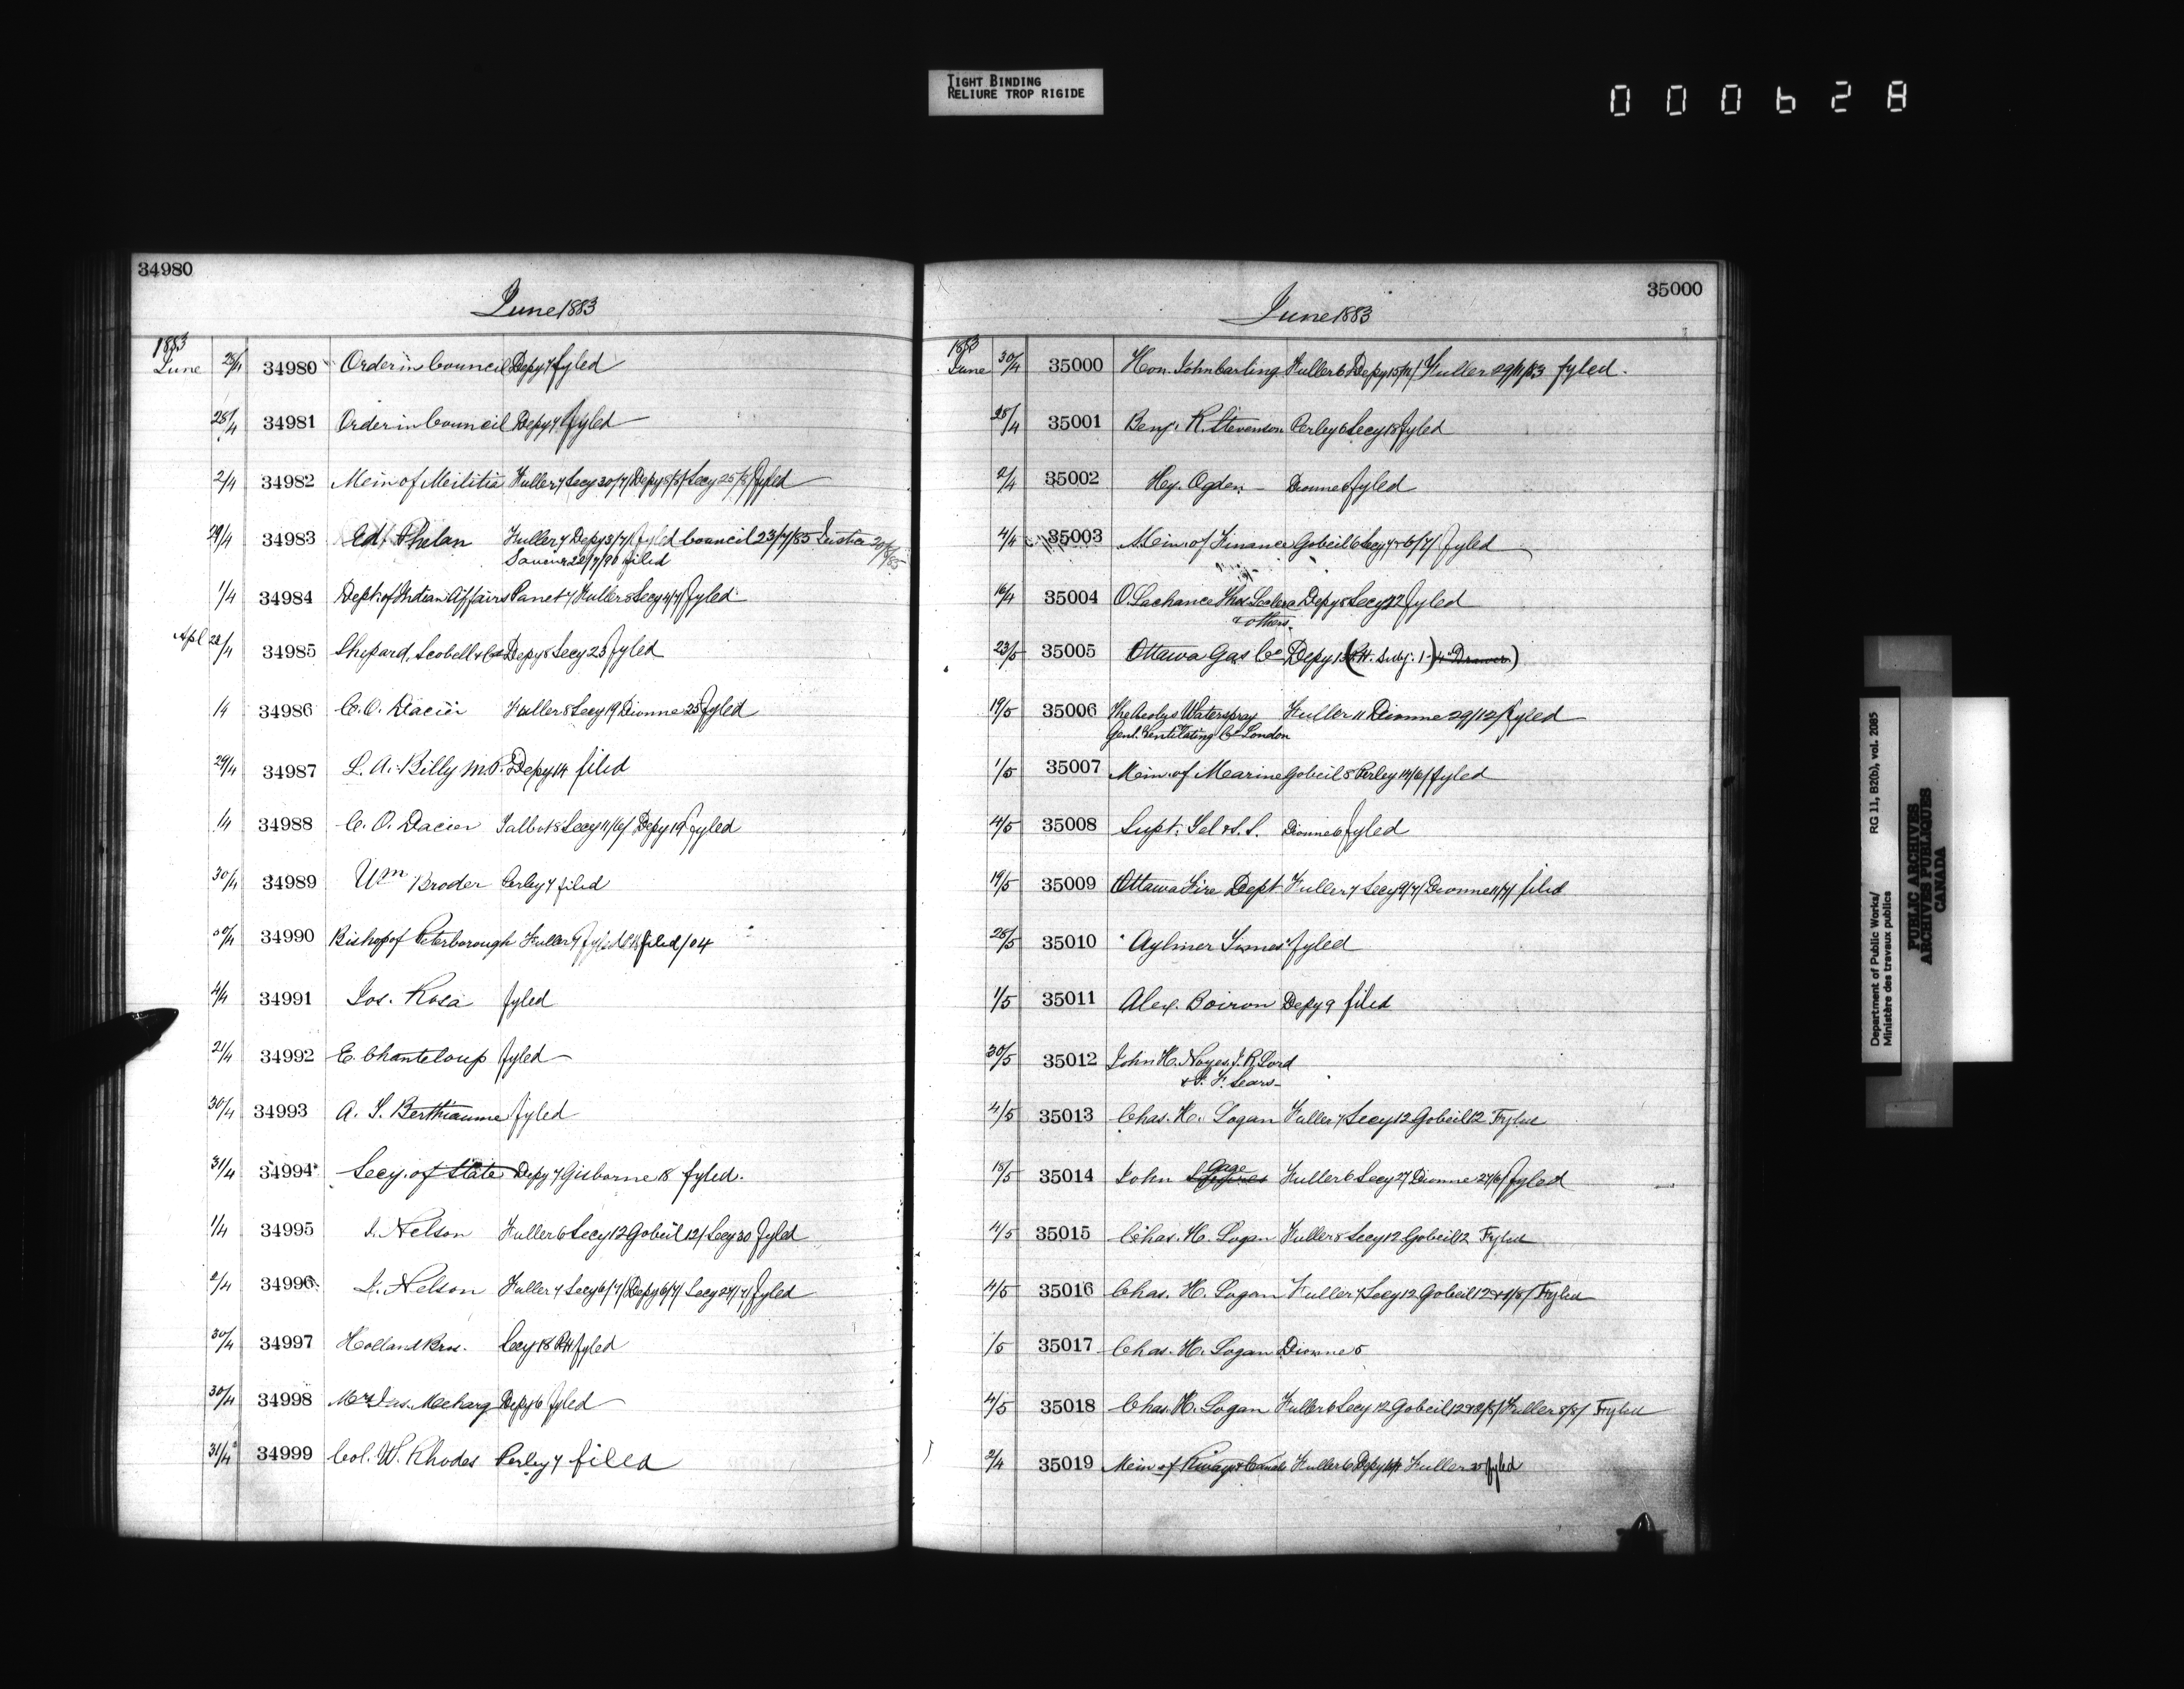 TIGHT BINDING
RELIURE TROP RIGIDE
000628
34980
June 1883
1883
June 28/4 34980 Order in Council Depy 7 fyled
28/4 34981 Order in Council Depy 7 fyled
2/4 34982 Min of Militia Fuller 7 Secy 30/7/ Depy 8/8/ Secy 25/8/ fyled
29/4 34983 Ed Phelan Fuller 7 Depy 3/7/ fyled Council 23/7/85
22/7/90 filed
1/4 34984 Dept. of Indian Affairs Panet 7 Fuller 8 Secy 4/7/ fyled
Apl 28/4 34985 Shepard, Scobell & Co Depy 8 Secy 23 fyled
14 34986 C. O. Dacier Fuller 8 Secy 19 Dionne 25 fyled
29/4 34987 L. A. Billy M.P. Depy 14 filed
14 34988 C. O. Dacier Talbot 8 Secy 11/6/ Depy 19 fyled
30/4 34989 Wm Broder Perley 7 filed
30/4 34990 Bishop of Peterborough Fuller 7 fyled filed/04
4/4 34991 Jos. Rosa fyled
21/4 34992 E. Chanteloup fyled
30/4 34993 A. T. Berthiaume fyled
31/4 34994 Secy. of State Depy 7 Gisborne 18 fyled.
1/4 34995 J. Nelson Fuller 6 Secy 12 Gobeil 12/ Secy 30 fyled
2/4 34996 J. Nelson Fuller 7 Secy 6/7/ Depy 6/7/ Secy 27/7/ fyled
30/4 34997 Holland Bros. Secy 18 RH fyled
30/4 34998 Mrs Jas. Meharg Depy 6 fyled
31/4 34999 Col. W. Rhodes Perley 7 filed
35000
June 1883
1883
June 30/4 35000 Hon. John Carling Fuller 6 Depy 15/11/ Fuller 29/11/83 fyled.
28/4 35001 Benj. R. Stevenson Perley 6 Secy 18 fyled
2/4 35002 Hy. Ogden Dionne 6 fyled
4/4 35003 Min. of Finance Gobeil 6 Secy 7 & 6/7/ fyled
16/4 35004 O. Lachance Thos. Depy 8 Secy 22 fyled
& others.
23/5 35005 Ottawa Gas Co Depy 13 (R.H. Subj. 1-) 4" Drawer)
19/5 35006 The Aeolus Waterspray Fuller 11 Dionne 29/12/ fyled
Genl. Ventilating Co London
1/5 35007 Min. of Marine Gobeil 8 Perley 14/6/ fyled
4/5 35008 Supt. Tel & S. S. Dionne 6 fyled
19/5 35009 Ottawa Fire Dept Fuller 7 Secy 9/7/ Dionne 11/7/ filed
28/5 35010 "Aylmer Times" fyled
1/5 35011 Alex. Boiron Depy 9 filed
30/5 35012 John H. Noyes, J. R. Lord
& F. F. Sears
4/5 35013 Chas. H. Logan Fuller 7 Secy 12 Gobeil 12 Fyled
18/5 35014 John Gage Fuller 6 Secy 27 Dionne 27/6/ fyled
4/5 35015 Chas. H. Logan Fuller 8 Secy 12 Gobeil 12 Fyled
4/5 35016 Chas. H. Logan Fuller 7 Secy 12 Gobeil 12 & 1/8/ Fyled
1/5 35017 Chas. H. Logan Dionne 5
4/5 35018 Chas. H. Logan Fuller 6 Secy 12 Gobeil 12 & 2/8/ Fuller 8/8/ Fyled
2/4 35019 Min of Rways & Canals Fuller 6 Depy Fuller fyled
Department of Public Works/ RG 11, B2(b), vol. 2085
Ministère des travaux publics
PUBLIC ARCHIVES
ARCHIVES PUBLIQUES
CANADA